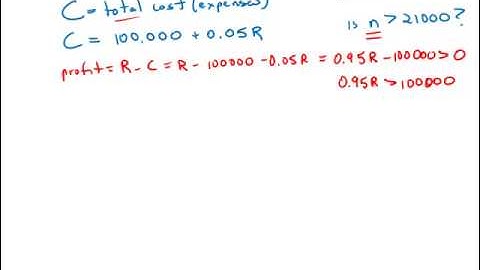 C = total cost (expenses)
is n > 21000?
C = 100.000 + 0.05R
profit = R - C = R - 100000 - 0.05R = 0.95R - 100000 > 0
0.95R > 100000